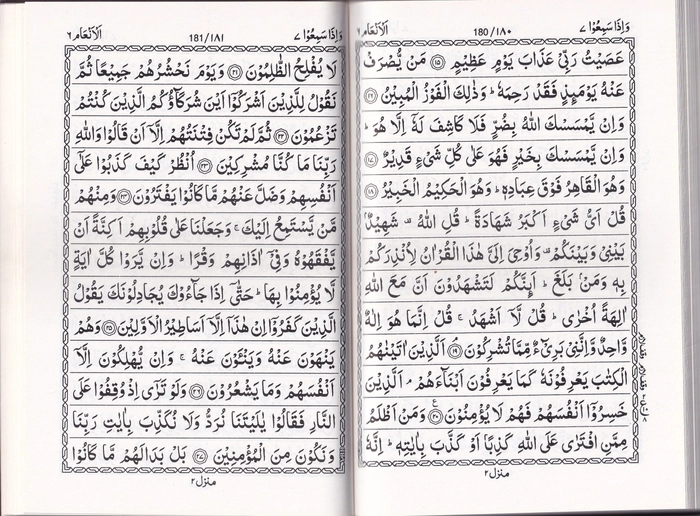 وَاِذَا سَمِعُوْا ٧
180/١٨٠
اَلْاَنْعَام ٦
عَصَيْتُ رَبِّيْ عَذَابَ يَوْمٍ عَظِيْمٍ ﴿١٥﴾ مَنْ يُّصْرَفْ
عَنْهُ يَوْمَئِذٍ فَقَدْ رَحِمَهٗ ؕ وَذٰلِكَ الْفَوْزُ الْمُبِيْنُ ﴿١٦﴾
وَاِنْ يَّمْسَسْكَ اللّٰهُ بِضُرٍّ فَلَا كَاشِفَ لَهٗۤ اِلَّا هُوَ ؕ
وَاِنْ يَّمْسَسْكَ بِخَيْرٍ فَهُوَ عَلٰى كُلِّ شَيْءٍ قَدِيْرٌ ﴿١٧﴾
وَهُوَ الْقَاهِرُ فَوْقَ عِبَادِهٖ ؕ وَهُوَ الْحَكِيْمُ الْخَبِيْرُ ﴿١٨﴾
قُلْ اَيُّ شَيْءٍ اَكْبَرُ شَهَادَةً ؕ قُلِ اللّٰهُ ۙ شَهِيْدٌۢ
بَيْنِيْ وَبَيْنَكُمْ ۟ وَاُوْحِيَ اِلَيَّ هٰذَا الْقُرْاٰنُ لِاُنْذِرَكُمْ
بِهٖ وَمَنْۢ بَلَغَ ؕ اَئِنَّكُمْ لَتَشْهَدُوْنَ اَنَّ مَعَ اللّٰهِ
اٰلِهَةً اُخْرٰى ؕ قُلْ لَّاۤ اَشْهَدُ ۚ قُلْ اِنَّمَا هُوَ اِلٰهٌ
وَّاحِدٌ وَّاِنَّنِيْ بَرِيْٓءٌ مِّمَّا تُشْرِكُوْنَ ﴿١٩﴾ اَلَّذِيْنَ اٰتَيْنٰهُمُ
الْكِتٰبَ يَعْرِفُوْنَهٗ كَمَا يَعْرِفُوْنَ اَبْنَآءَهُمْ ۘ اَلَّذِيْنَ
خَسِرُوْۤا اَنْفُسَهُمْ فَهُمْ لَا يُؤْمِنُوْنَ ﴿٢٠﴾ وَمَنْ اَظْلَمُ
مِمَّنِ افْتَرٰى عَلَى اللّٰهِ كَذِبًا اَوْ كَذَّبَ بِاٰيٰتِهٖ ؕ اِنَّهٗ
منزل ٢
وَاِذَا سَمِعُوْا ٧
181/١٨١
اَلْاَنْعَام ٦
لَا يُفْلِحُ الظّٰلِمُوْنَ ﴿٢١﴾ وَيَوْمَ نَحْشُرُهُمْ جَمِيْعًا ثُمَّ
نَقُوْلُ لِلَّذِيْنَ اَشْرَكُوْۤا اَيْنَ شُرَكَآؤُكُمُ الَّذِيْنَ كُنْتُمْ
تَزْعُمُوْنَ ﴿٢٢﴾ ثُمَّ لَمْ تَكُنْ فِتْنَتُهُمْ اِلَّاۤ اَنْ قَالُوْا وَاللّٰهِ
رَبِّنَا مَا كُنَّا مُشْرِكِيْنَ ﴿٢٣﴾ اُنْظُرْ كَيْفَ كَذَبُوْا عَلٰۤى
اَنْفُسِهِمْ وَضَلَّ عَنْهُمْ مَّا كَانُوْا يَفْتَرُوْنَ ﴿٢٤﴾ وَمِنْهُمْ
مَّنْ يَّسْتَمِعُ اِلَيْكَ ۚ وَجَعَلْنَا عَلٰى قُلُوْبِهِمْ اَكِنَّةً اَنْ
يَّفْقَهُوْهُ وَفِيْۤ اٰذَانِهِمْ وَقْرًا ؕ وَاِنْ يَّرَوْا كُلَّ اٰيَةٍ
لَّا يُؤْمِنُوْا بِهَا ؕ حَتّٰۤى اِذَا جَآءُوْكَ يُجَادِلُوْنَكَ يَقُوْلُ
الَّذِيْنَ كَفَرُوْۤا اِنْ هٰذَاۤ اِلَّاۤ اَسَاطِيْرُ الْاَوَّلِيْنَ ﴿٢٥﴾ وَهُمْ
يَنْهَوْنَ عَنْهُ وَيَنْـَٔوْنَ عَنْهُ ۚ وَاِنْ يُّهْلِكُوْنَ اِلَّاۤ
اَنْفُسَهُمْ وَمَا يَشْعُرُوْنَ ﴿٢٦﴾ وَلَوْ تَرٰۤى اِذْ وُقِفُوْا عَلَى
النَّارِ فَقَالُوْا يٰلَيْتَنَا نُرَدُّ وَلَا نُكَذِّبَ بِاٰيٰتِ رَبِّنَا
وَنَكُوْنَ مِنَ الْمُؤْمِنِيْنَ ﴿٢٧﴾ بَلْ بَدَا لَهُمْ مَّا كَانُوْا
منزل ٢